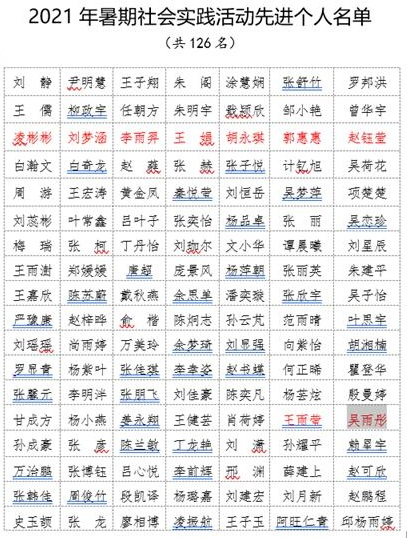 2021年暑期社会实践活动先进个人名单
（共126名）
刘 静 尹明慧 王子翔 朱 阁 涂慧娴 张舒竹 罗邦洪
王 儒 柳政宇 任朝方 朱明宇 戴颖欣 邹小艳 曾华宇
凌彬彬 刘梦涵 李雨羿 王 娟 胡永琪 郭惠惠 赵钰莹
白瀚文 白奇龙 赵 蕤 张 赫 张子悦 计钇旭 吴荷花
周 游 王宏涛 黄金凤 秦悦莹 刘恒岳 吴梦萍 项楚楚
刘蕊彬 叶常鑫 吕叶子 张奕怡 杨品卓 张 丽 吴恋珍
梅 瑞 张 柯 丁丹怡 刘珈尔 文小华 谭晨曦 刘星辰
王雨澍 郑媛媛 唐超 庞景风 杨萍朝 张丽英 朱建平
王嘉欣 陈苏蔚 戴秋燕 余思单 潘奕璇 张欣宇 吴子怡
严豫康 赵梓晔 俞 楷 陈炯志 孙云芃 范雨晴 叶思宇
刘瑶瑶 尚雨婷 万美玲 余梦琦 刘显强 向紫怡 胡湘楠
罗显青 杨紫叶 张佳琪 李孝姿 赵书媒 何正晞 瞿登华
张馨元 李明泮 张朋飞 刘佳豪 陈奕凡 杨芸炫 殷曼婷
甘成方 杨小燕 姜永翔 王健芸 肖荷婷 王雨莹 吴雨彤
孙成豪 张 彦 陈兰敏 丁龙艳 刘 潇 孙耀平 赖星宇
万治鹏 张博钰 吕心悦 李前辉 邢 渊 薛建上 赵可欣
张韩佳 周俊竹 段凯译 杨璐嘉 刘建宏 刘月新 赵鹏程
史玉颉 张 龙 廖相博 凌振航 王子玉 阿旺仁青 邱杨雨婷